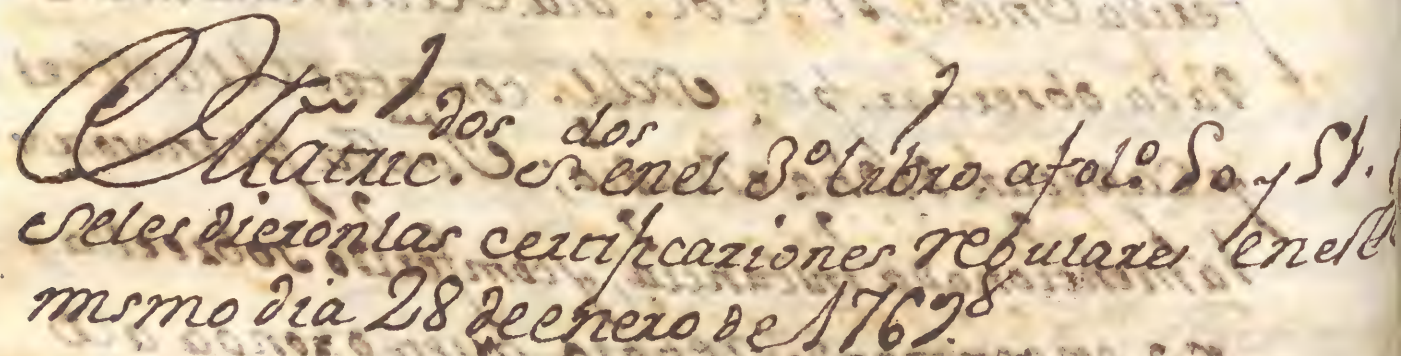 Matric.dos en el 3.º libro a fol.º 50 y 51.
se les dieron las certificaziones regulares en este
mismo dia 28 de enero de